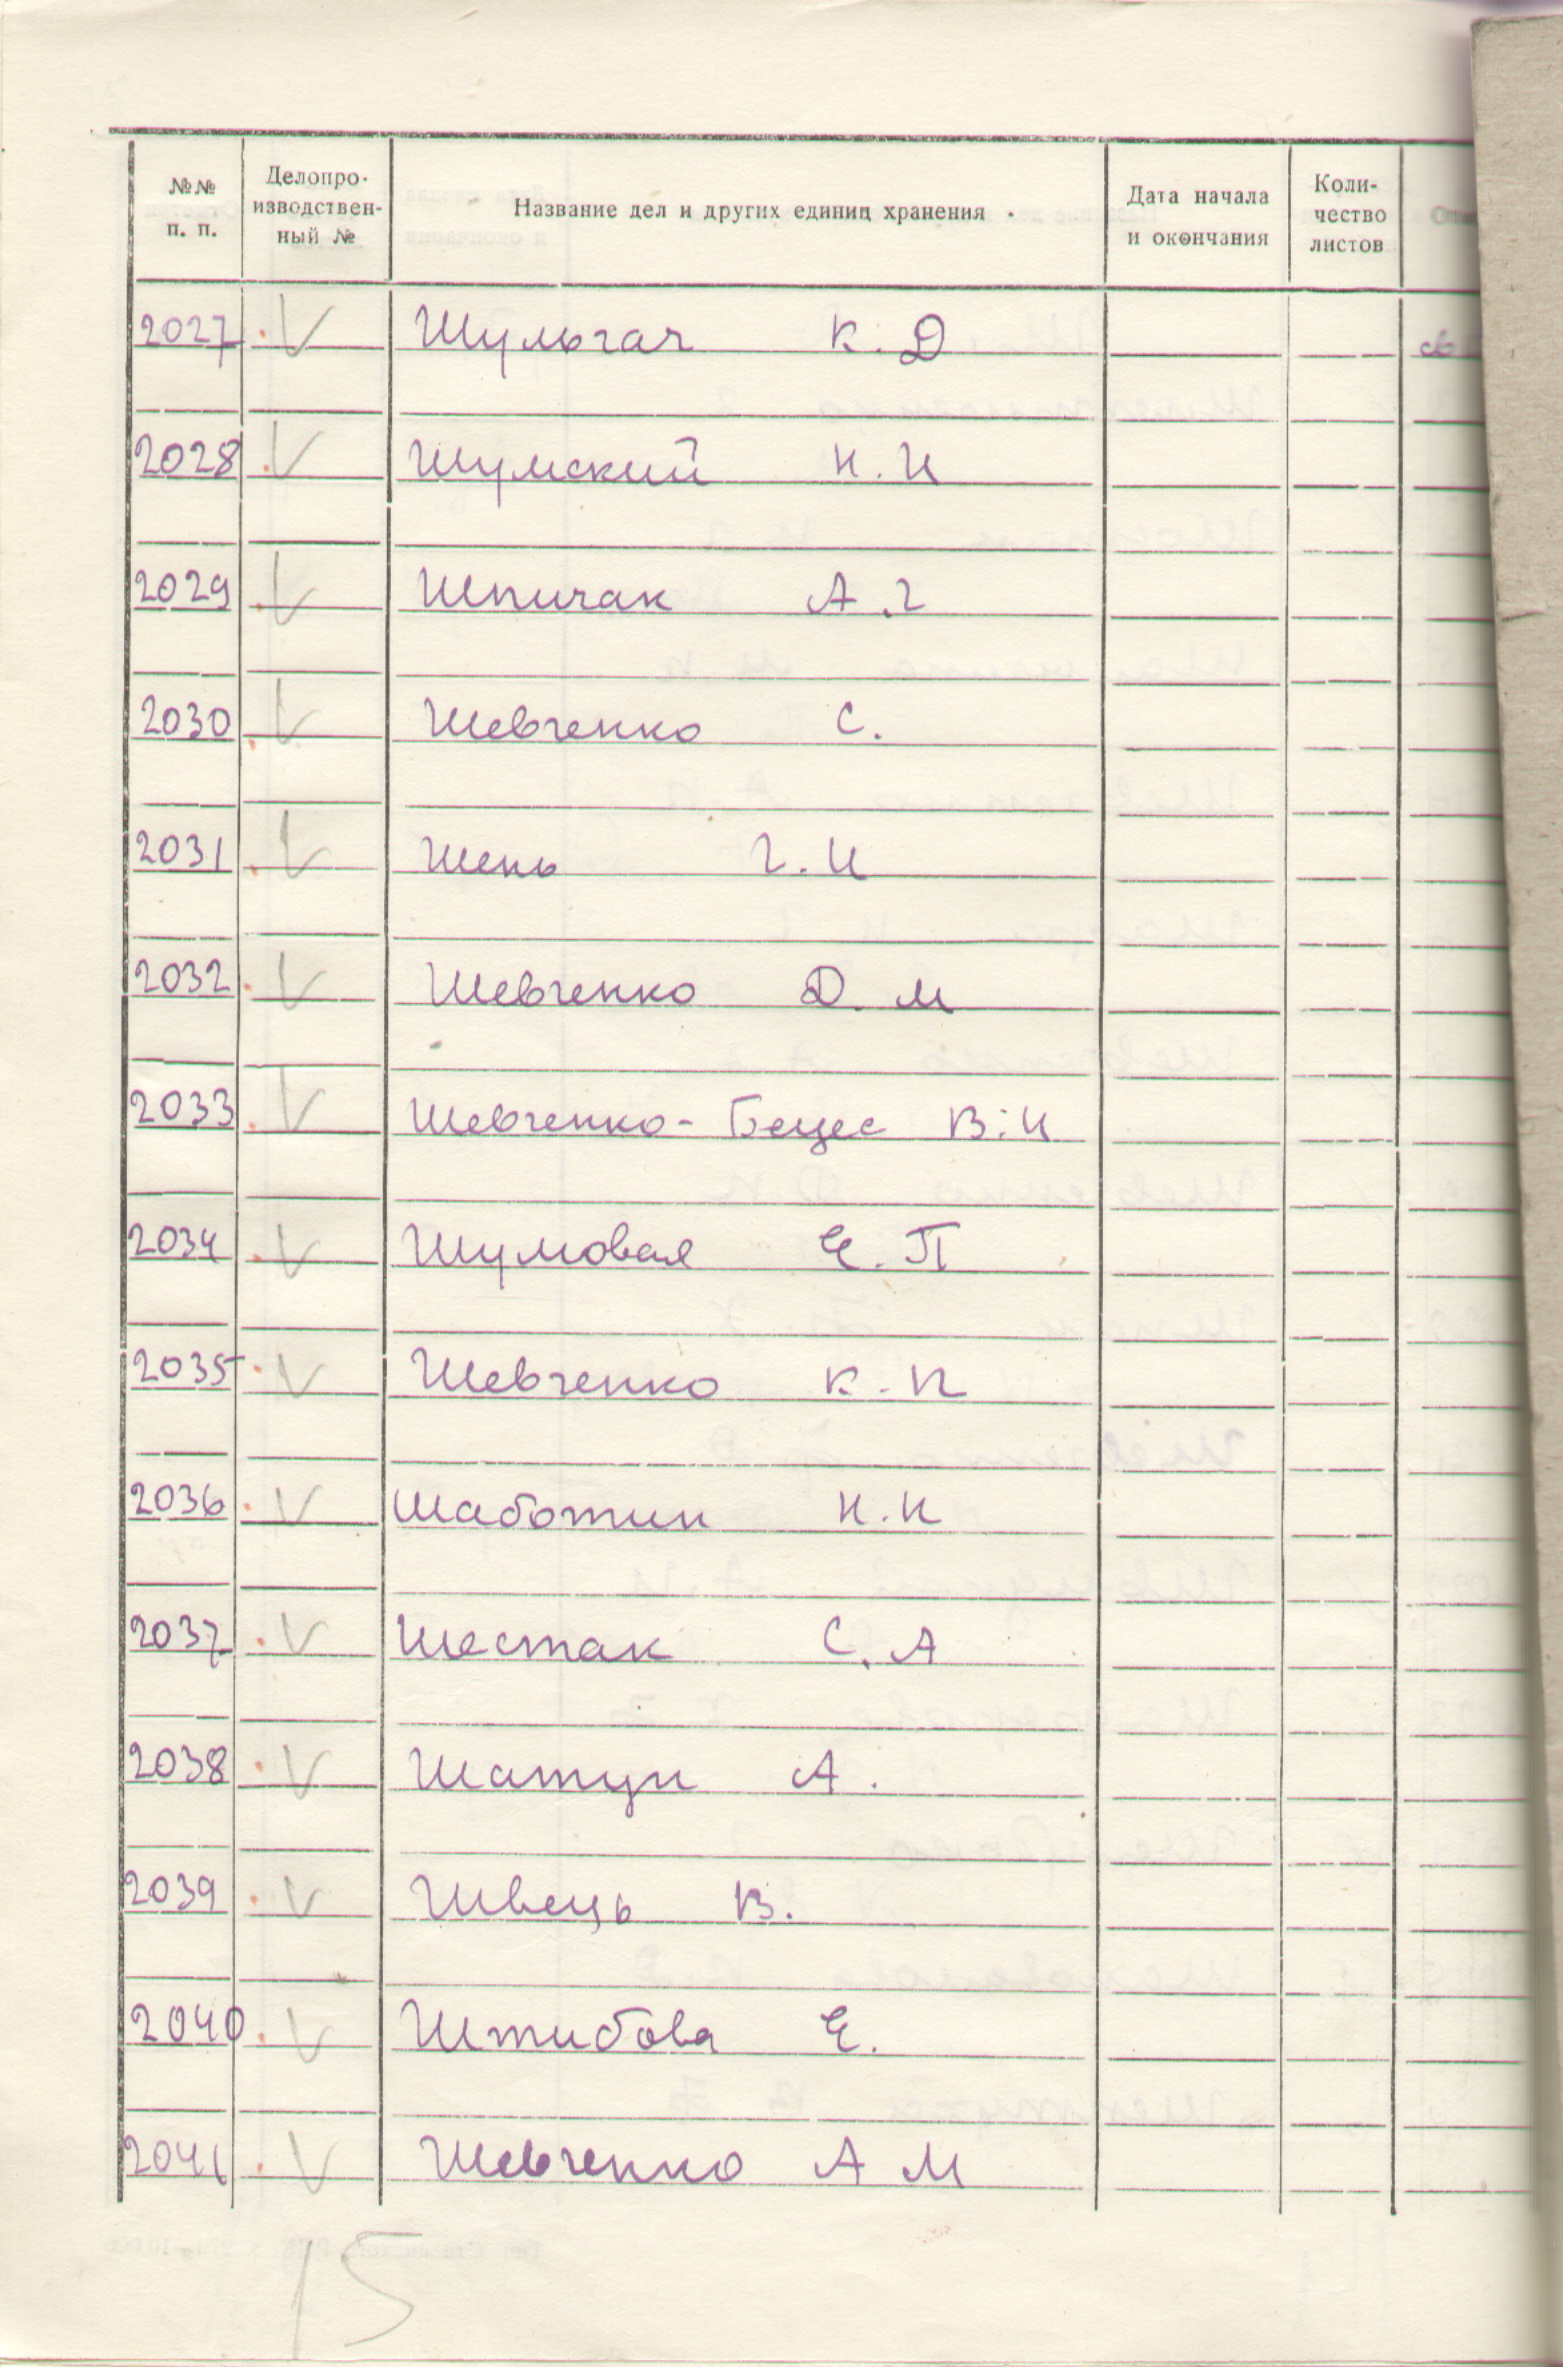 №№ п. п. Делопро-изводствен-ный № Название дел и других единиц хранения Дата начала и окончания Коли-чество листов
2027 Шульгач К. Д
2028 Шумский И. И
2029 Шпичак А. Г
2030 Шевченко С.
2031 Шень Г. И
2032 Шевченко Д. М
2033 Шевченко - Бецес В. И
2034 Шумовая Е. П
2035 Шевченко К. П
2036 Шаботин Н. Н
2037 Шестак С. А
2038 Шатун А.
2039 Швець В.
2040 Штибова Е.
2041 Шевченко А М
15